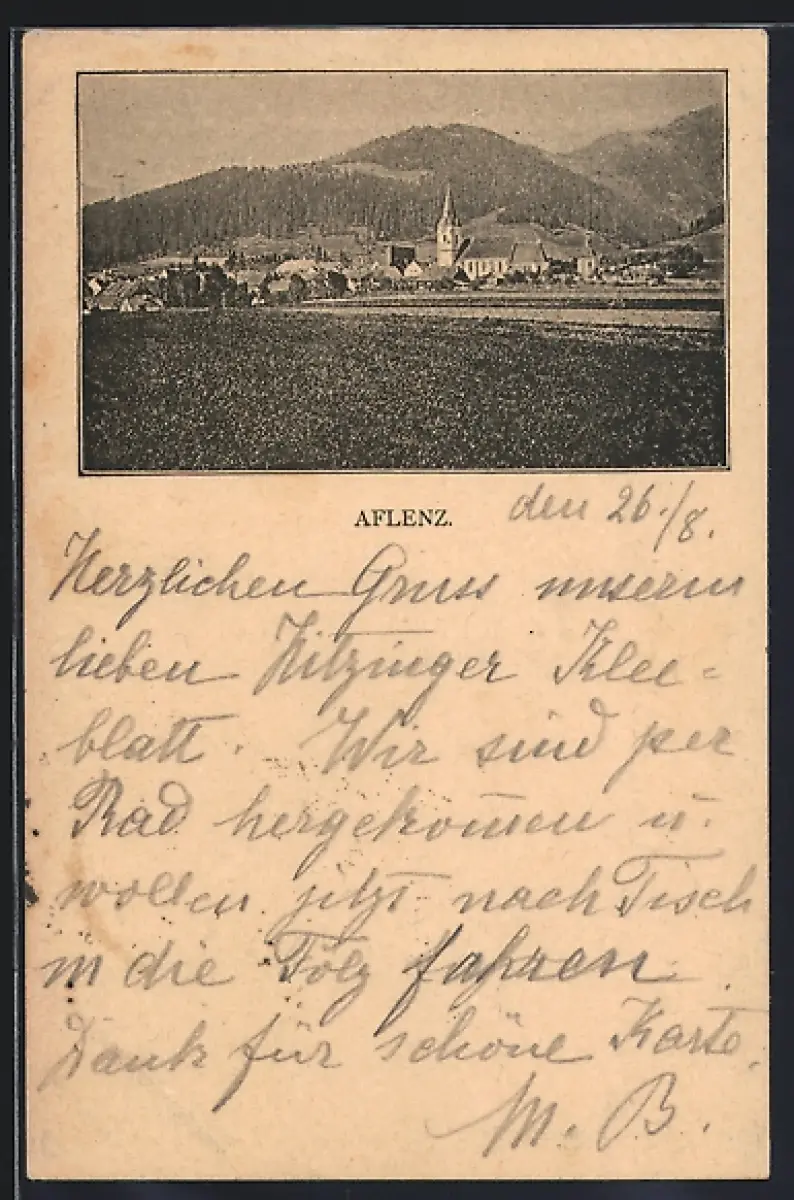 AFLENZ.
den 26./8.
Herzlichen Gruss unserm
lieben Hitzinger Klee-
blatt. Wir sind per
Rad hergekom̄en u.
wollen jetzt nach Tisch
in die Fölz fahren.
Dank für schöne Karte.
M. B.